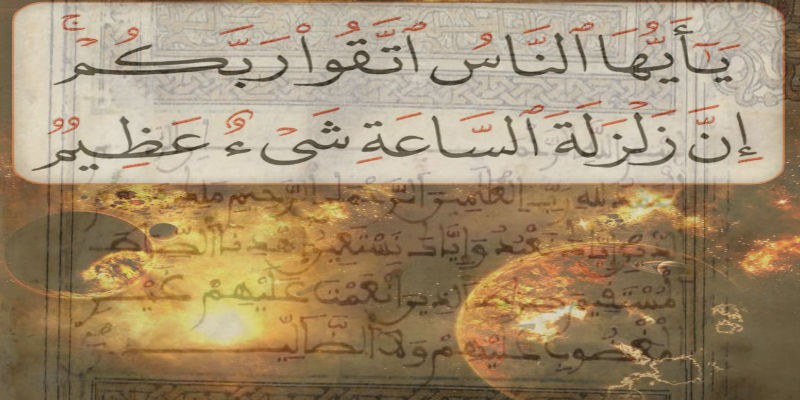 يَـٰٓأَيُّهَا ٱلنَّاسُ ٱتَّقُوا۟ رَبَّكُمْ ۚ
إِنَّ زَلْزَلَةَ ٱلسَّاعَةِ شَىْءٌ عَظِيمٌ
لله رب العلمين الرحمن الرحيم ملك
نعبد وإياك نستعين اهدنا الصراط
المستقيم صراط الذين أنعمت عليهم غير
المغضوب عليهم ولا الضالين